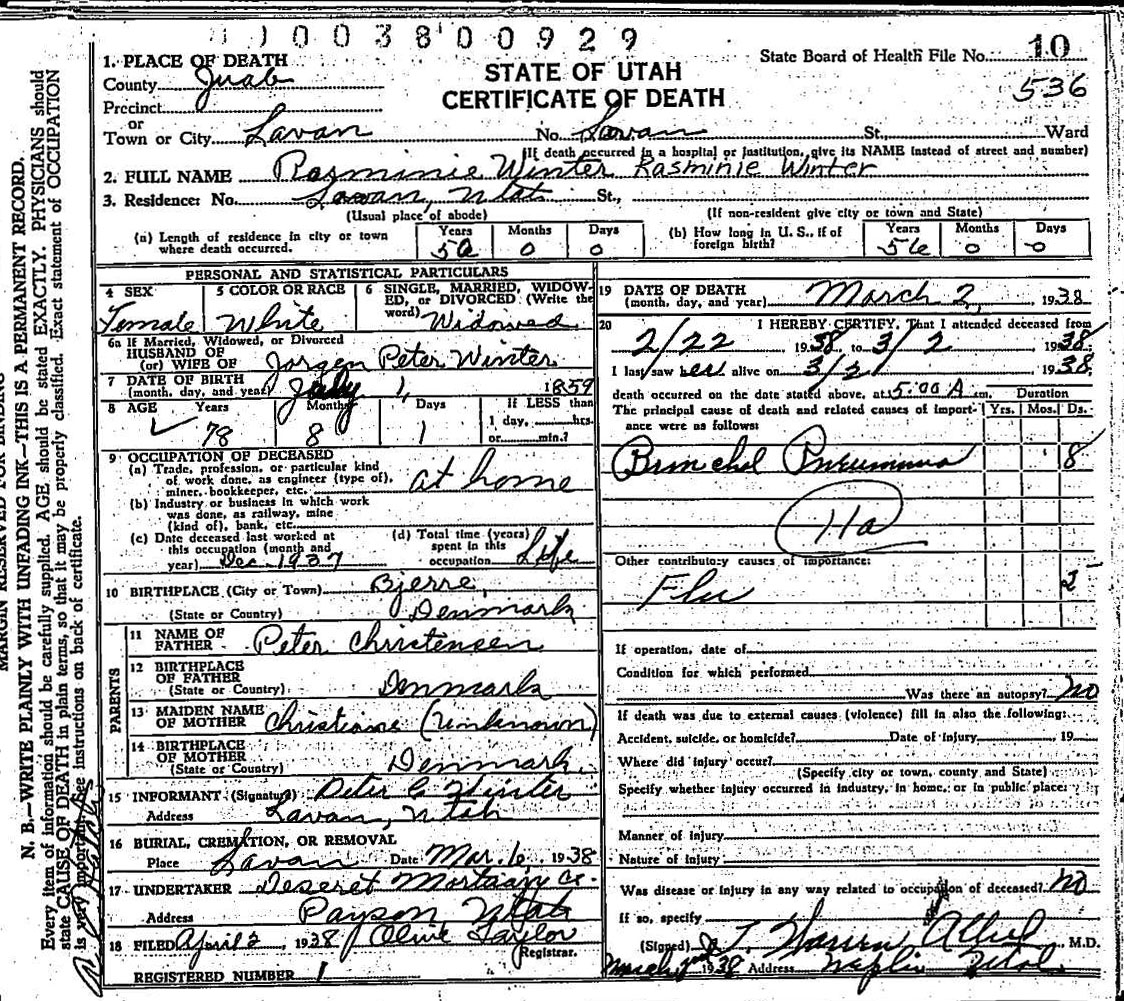 1003800929
State Board of Health File No. 10
536
1. PLACE OF DEATH
County Juab
STATE OF UTAH
CERTIFICATE OF DEATH
Precinct
or
Town or City Lavan No. Lavan St., Ward
(If death occurred in a hospital or institution, give its NAME instead of street and number)
2. FULL NAME Rasminie Winter Rasminie Winter
3. Residence: No. Lavan, Utah St.,
(Usual place of abode) (If non-resident give city or town and State)
(a) Length of residence in city or town where death occurred. Years 56 Months 0 Days 0
(b) How long in U. S., if of foreign birth? Years 56 Months 0 Days 0
PERSONAL AND STATISTICAL PARTICULARS
4 SEX Female
5 COLOR OR RACE White
6 SINGLE, MARRIED, WIDOW-
ED, or DIVORCED (Write the
word) Widowed
6a If Married, Widowed, or Divorced
HUSBAND OF
(or) WIFE OF Jorgen Peter Winter
7 DATE OF BIRTH
(month, day, and year) July 1, 1859
8 AGE Years 78 Months 8 Days 1
If LESS than
1 day, hrs.
or min.?
9 OCCUPATION OF DECEASED
(a) Trade, profession, or particular kind
of work done, as engineer (type of),
miner, bookkeeper, etc. at home
(b) Industry or business in which work
was done, as railway, mine
(kind of), bank, etc.
(c) Date deceased last worked at
this occupation (month and
year) Dec. 1937
(d) Total time (years)
spent in this
occupation Life
10 BIRTHPLACE (City or Town) Bjerre,
(State or Country) Denmark
PARENTS
11 NAME OF
FATHER Peter Christensen
12 BIRTHPLACE
OF FATHER
(State or Country) Denmark
13 MAIDEN NAME
OF MOTHER Christiane (Unknown)
14 BIRTHPLACE
OF MOTHER
(State or Country) Denmark
15 INFORMANT (Signature) Peter C Winter
Address Lavan, Utah
16 BURIAL, CREMATION, OR REMOVAL
Place Lavan Date Mar. 6, 1938
17 UNDERTAKER Deseret Mortuary Co.
Address Payson Utah
18 FILED April 2, 1938 Olive Taylor
Registrar.
REGISTERED NUMBER 1
19 DATE OF DEATH
(month, day, and year) March 2, 1938
20 I HEREBY CERTIFY, That I attended deceased from
2/22 1938 to 3/2 1938
I last saw her alive on 3/2 1938
death occurred on the date stated above, at 5:00 A m.
The principal cause of death and related causes of import-
ance were as follows:
Duration
Yrs. Mos. Ds.
Bronchal Pneumonia 8
11a
Other contributory causes of importance:
Flu 2
If operation, date of
Condition for which performed
Was there an autopsy? no
If death was due to external causes (violence) fill in also the following:
Accident, suicide, or homicide? Date of injury 19
Where did injury occur?
(Specify city or town, county and State)
Specify whether injury occurred in industry, in home, or in public place:
Manner of injury
Nature of injury
Was disease or injury in any way related to occupation of deceased? no
If so, specify
(Signed) M.D.
March 2nd 1938 Address Nephi Utah
MARGIN RESERVED FOR BINDING
N. B.—WRITE PLAINLY WITH UNFADING INK—THIS IS A PERMANENT RECORD.
Every item of information should be carefully supplied. AGE should be stated EXACTLY. PHYSICIANS should
state CAUSE OF DEATH in plain terms, so that it may be properly classified. Exact statement of OCCUPATION
is very important. See instructions on back of certificate.